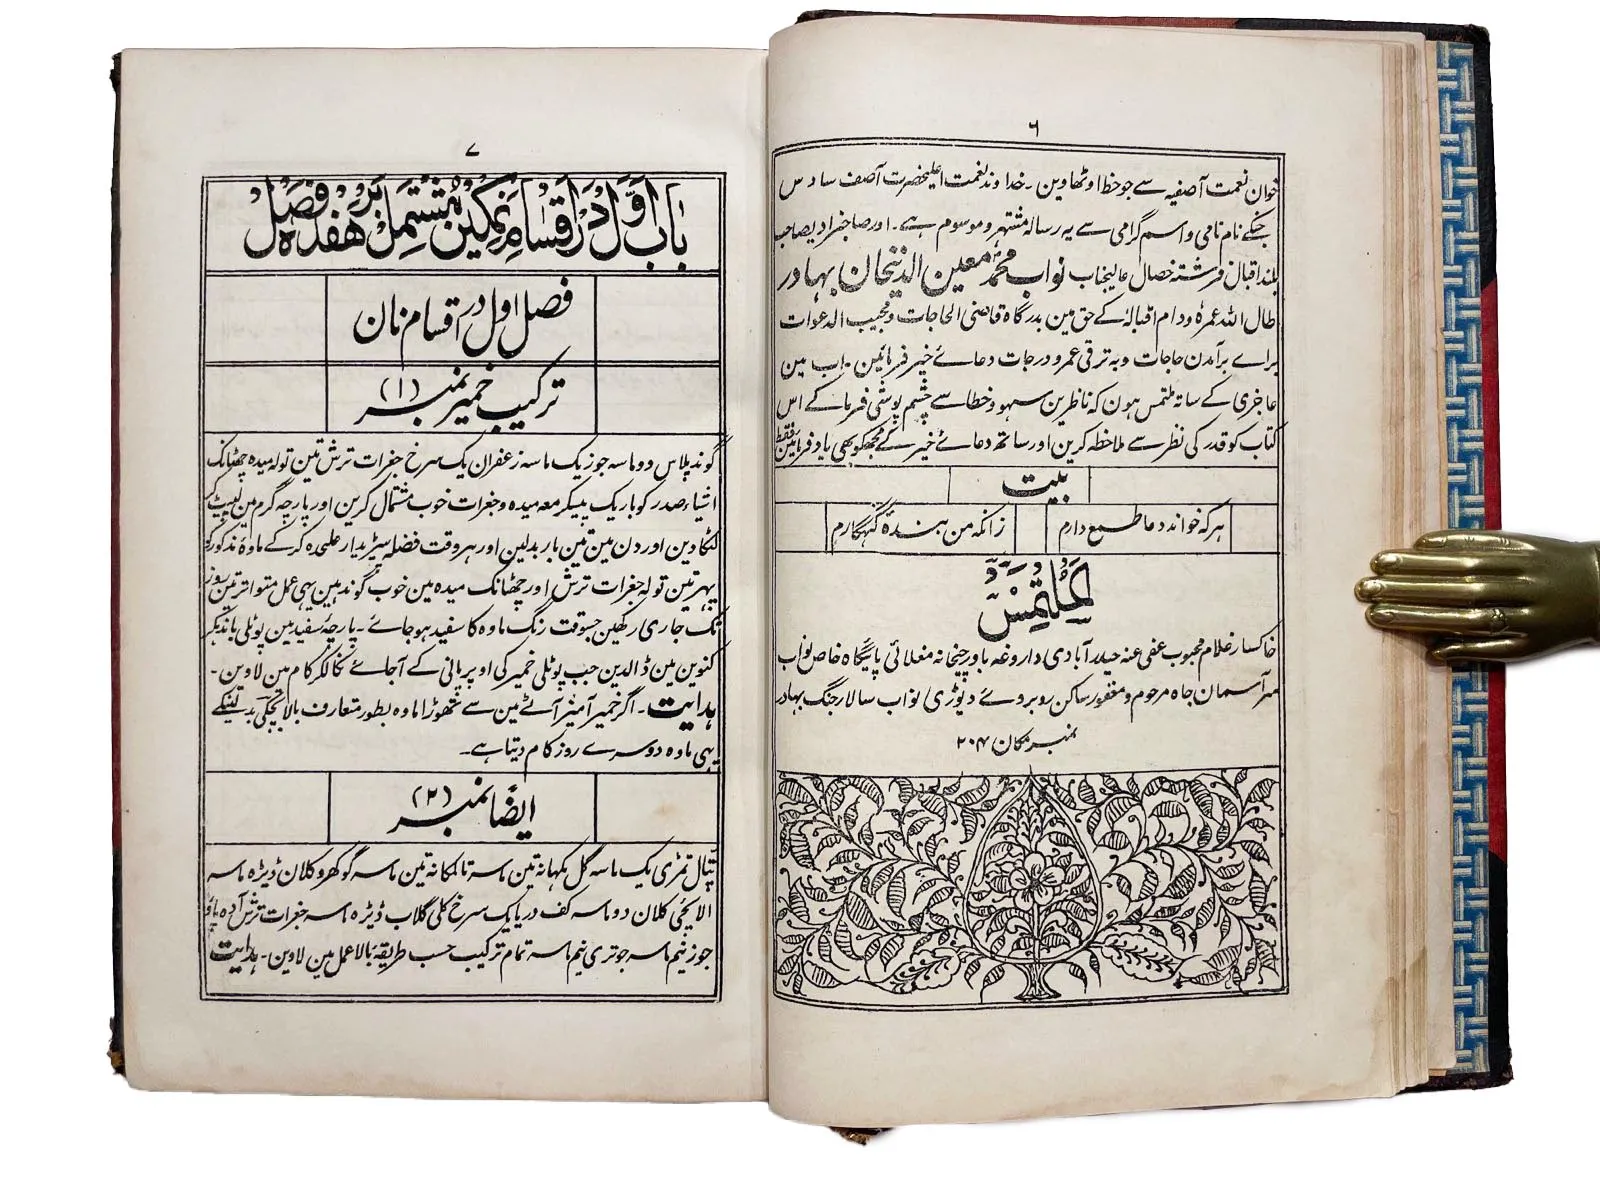 ۶
خوان نعمت آصفیہ سے جو حظ اوٹھاوین ۔ خداوند نعمت اعلیٰحضرت آصف سادس
جنکے نام نامی و اسم گرامی سے یہ رسالہ مشتہر و موسوم ہے ۔ اور صاحبزادیصاحب
بلند اقبال فرشتہ خصال عالیجناب نواب محمد معین الدینخان بہادر
طال اللہ عمرہٗ و دام اقبالہٗ کے حق مین بدرگاہ قاضی الحاجات و مجیب الدعوات
براے برآمدن حاجات و بہ ترقی عمر و درجات دعاے خیر فرمائین ۔ اب مین
عاجزی کے ساتہ ملتمس ہون کہ ناظرین سہو و خطا سے چشم پوشی فرما کے اس
کتاب کو قدر کی نظر سے ملاحظہ کرین اور ساتھ دعاے خیر کے مجھکو بھی یاد فرمائین فقط
بیت
ہرکہ خواند دعا طمع دارم زانکہ من بندۂ گنہگارم
الملتمس
خاکسار غلام محبوب عفی عنہ حیدرآبادی داروغہ باورچیخانہ مغلائی پائیگاہ خاص نواب
سر آسمان جاہ مرحوم و مغفور ساکن روبروے دیوڑی نواب سالار جنگ بہادر
نمبر مکان ۲۰۴
۷
باب اول در اقسام نمکین مشتمل بر ہفدہ فصل
فصل اول در اقسام نان
ترکیب خمیر نمبر (۱)
گوند پلاس دو ماسہ جوز یک ماسہ زعفران یک سرخ جغرات ترش تین تولہ میدہ چھٹانک
اشیاء صدر کو باریک پیسکر معہ میدہ و جغرات خوب مشتمال کرین اور پارچہ گرم مین لپیٹ
لٹکادین اور دن مین تین بار بدلین اور ہر وقت فضلہ سپڑیدار علیحدہ کر کے مادہ مذکور کو
پہر تین تولہ جغرات ترش اور چھٹانک میدہ مین خوب گوندہین یہی عمل متواتر تین روز
تک جاری رکھین جسوقت رنگ مادہ کا سفید ہوجاے ۔ پارچہ سفید مین پوٹلی باندہکر
کنوین مین ڈالدین جب پوٹلی خمیر کی اوپر پانی کے آجاے نکالکر کام مین لاوین ۔
ہدایت ۔ اگر خمیر آمیز آٹے مین سے تھوڑا مادہ بطور متعارف بالا بچکی بدلینگے
یہی مادہ دوسرے روز کام دیتا ہے ۔
ایضًا نمبر (۲)
تمری یک ماسہ گل مکہانہ تین ماسہ تالمکانہ تین ماسہ گوکھرو کلان ڈیڑہ ماسہ
الائچی کلان دو ماسہ کف دریا یک سرخ کلی گلاب ڈیڑہ ماسہ جغرات ترش آدہ پاؤ
جوز نیم ماسہ جوتری نیم ماسہ تمام ترکیب حسب طریقہ بالا عمل مین لاوین ۔ ہدایت